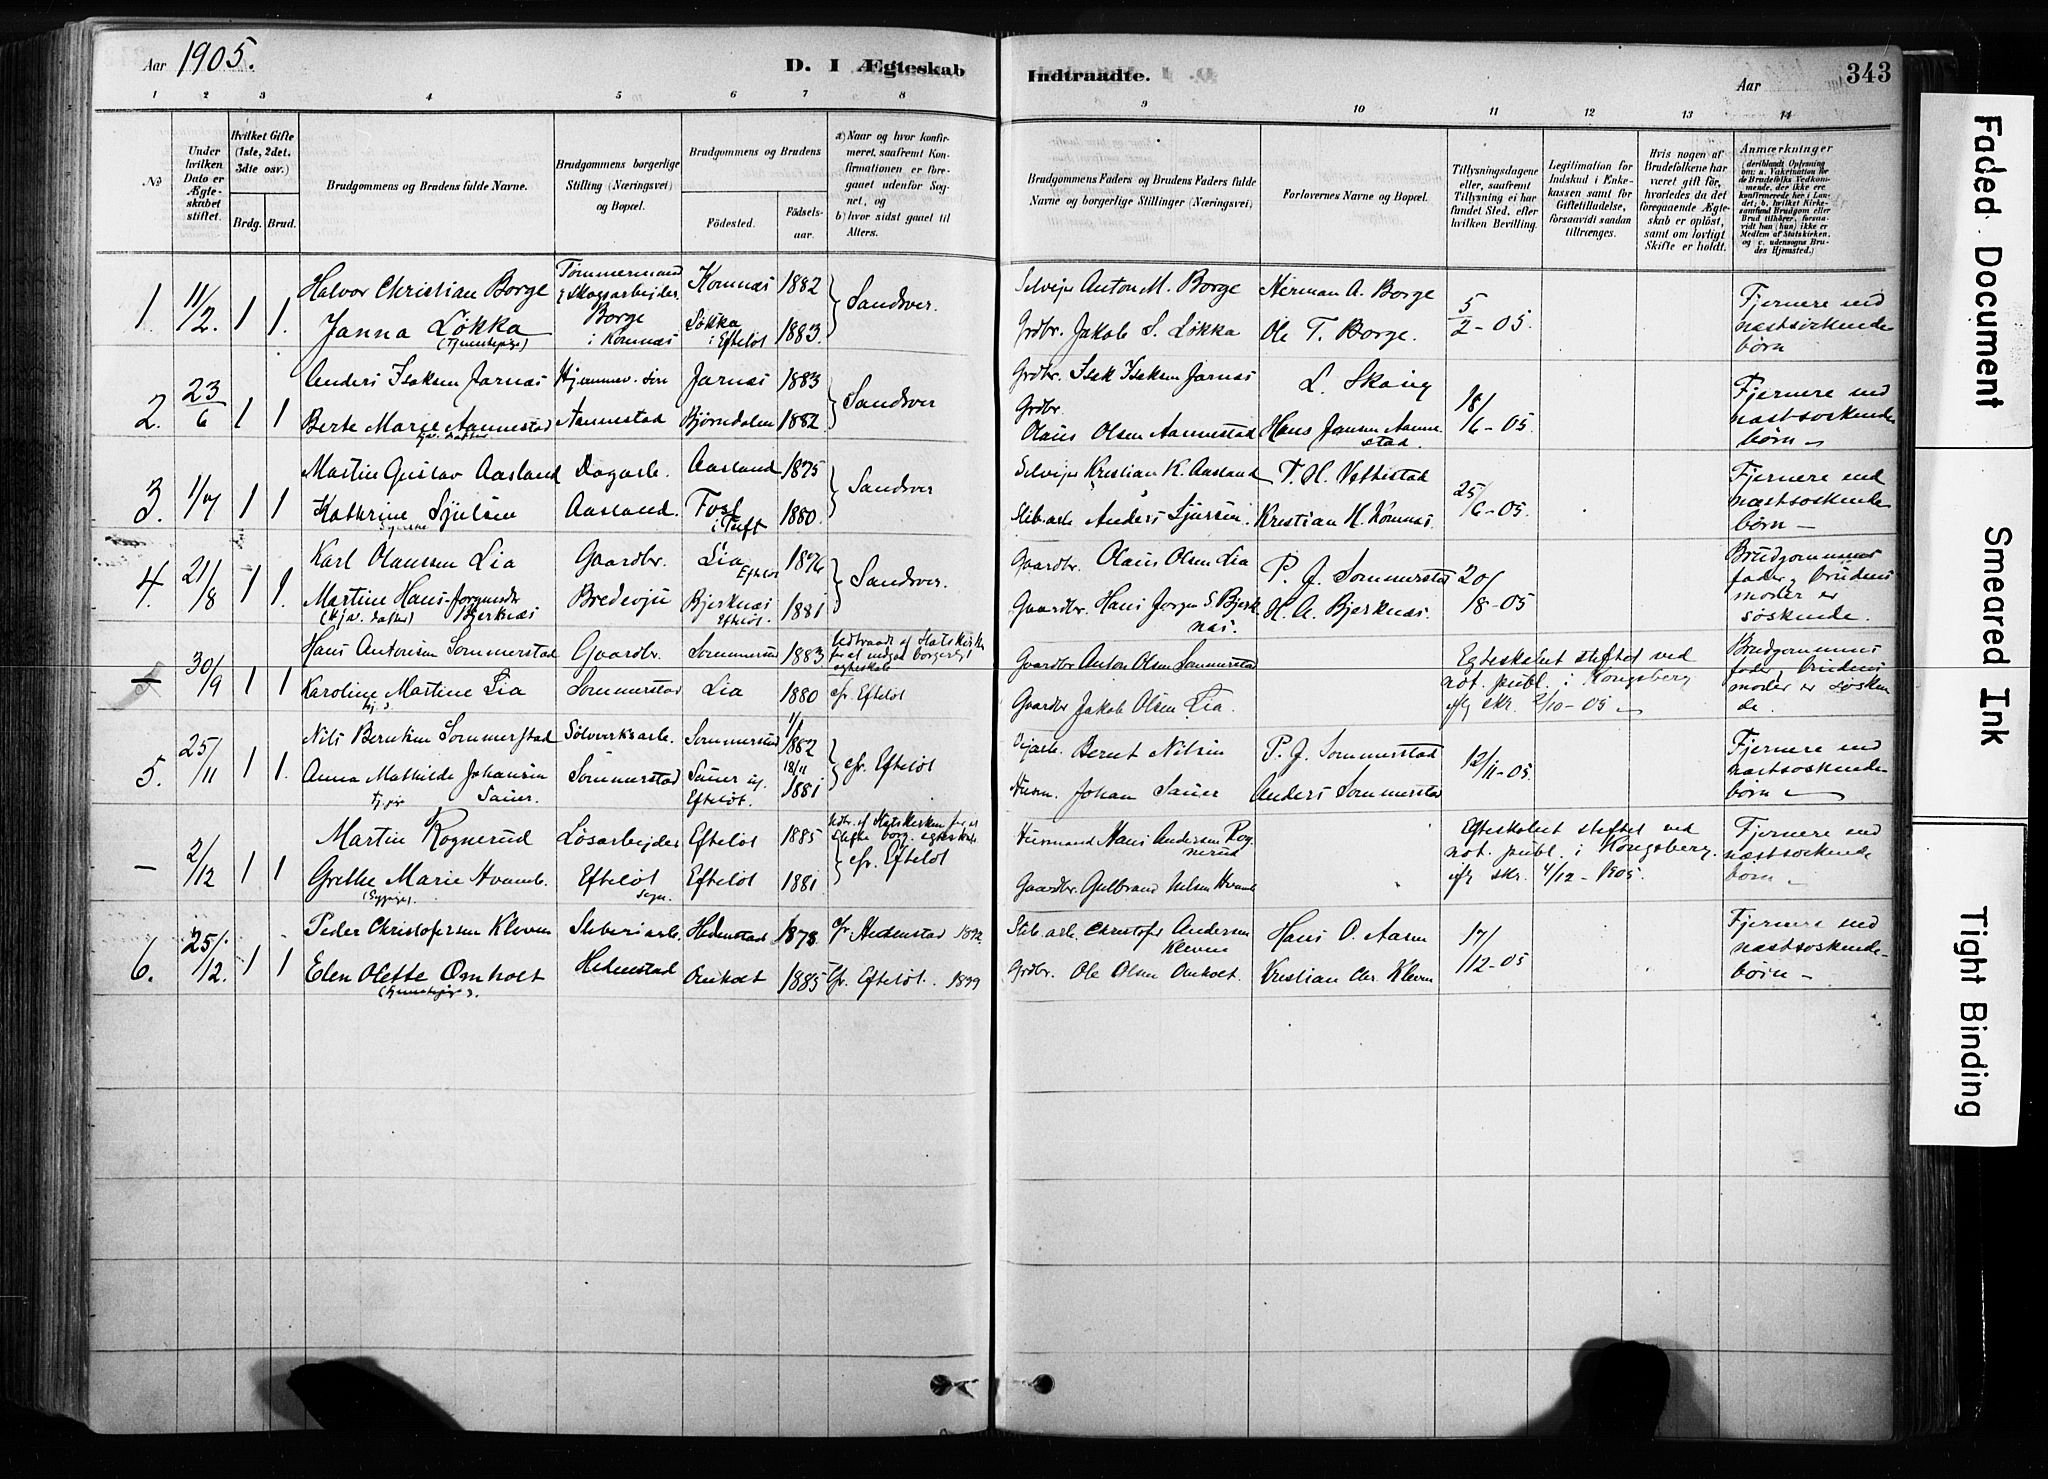 Aar 1905.
D. I Ægteskab
Indtraadte.
Aar
343
1 2 3 4 5 6 7 8
9 10 11 12 13 14
No
Under hvilken Dato er Ægteskabet stiftet.
Hvilket Gifte (1ste, 2det. 3die osv.)
Brdg. Brud.
Brudgommens og Brudens fulde Navne.
Brudgommens borgerlige Stilling (Næringsvei) og Bopæl.
Brudgommens og Brudens
Födested.
Födselsaar.
a) Naar og hvor konfirmeret, saafremt Konfirmationen er foregaaet udenfor Sognet, og
b) hvor sidst gaaet til Alters.
Brudgommens Faders og Brudens Faders fulde Navne og borgerlige Stillinger (Næringsvei)
Forlovernes Navne og Bopæl.
Tillysningsdagene eller, saafremt Tillysning ei har fundet Sted, efter hvilken Bevilling.
Legitimation for Indskud i Enkekassen samt for Giftetilladelse, forsaavidt saadan tiltrænges.
Hvis nogen af Brudefolkene har været gift för, hvorledes da det foregaaende Ægteskab er oplöst, samt om lovligt Skifte er holdt.
Anmærkninger
1. 11/2. 1 1.
Halvor Christian Borge
Janna Løkka
(Tjenestepige)
Tømmermand
& Skogsarbejder
Borge
i Komnæs
Komnæs 1882
Løkka
i Efteløt 1883.
Sandsver.
Selvejer Anton M. Borge
Grdbr. Jakob S. Løkka
Herman A. Borge
Ole T. Borge.
5/2 - 05.
Fjernere end
næstsøskende
børn
2. 23/6 1 1
Anders Isaksen Jarnæs
Berte Marie Aannestad
Aannestad
Jarnæs 1883
Bjørndalen 1882.
Sandsver
Grdbr. Isak Isaksen Jarnæs
Grdbr.
Olaus Olsen Aannestad
Hans Jansen Aanne
stad.
18/6 - 05.
Fjernere end
næstsøskende
børn
3. 1/7 1 1
Martin Gustav Aasland
Kathrine
Dagarb.
Aasland.
Aasland 1875
i Tuft 1880.
Sandsver
Selvejer Kristian K. Aasland
Anders
T. H. Vettestad
Kristian H. Komnæs.
25/6 - 05.
Fjernere end
næstsøskende
børn
4. 21/8 1 1.
Karl Olaussen Lia
Martine Hans Jørgensdr
Bjerknæs
Gaardbr.
Bredevju
Lia
Efteløt 1876
Bjerknæs
Efteløt. 1881
Sandsver.
Gaardbr. Olaus Olsen Lia
Gaardbr. Hans Jørgen S Bjerk
næs.
P. J. Sommerstad
H. A. Bjerknæs.
20/8 - 05
Brudgommens
fader, brudens
moder er
søskende.
30/9 1 1
Hans Antonsen Sommerstad
Karoline Martine Lia
Gaardbr.
Sommerstad
Sommerstad 1883
Lia 1880
Udtraadt af Statskirken
for at indgaa borgerligt
egteskab
cfr. Efteløt
Gaardbr Anton Olsen Sommerstad
Gaardbr Jakob Olsen Lia.
Egteskabet stiftet ved
not. publ. i Kongsberg
ifg skr. 2/10 - 05
Brudgommens
fader, brudens
moder er søsken
de.
5. 25/11 1 1.
Nils Berntsen Sommerstad
Anna Mathilde Johansen
Sauer.
Sølvverksarb.
Sommerstad
Sommerstad 1/1 1882
Efteløt. 18/11 1881
cfr. Efteløt
Bernt Nilsen
Johan Sauer
P. J. Sommerstad
Anders Sommerstad
12/11 - 05.
Fjernere end
næstsøskende
børn
— 2/12 1 1
Martin Rognerud
Grethe Marie Hvamb.
(Sypige)
Løsarbejder
Efteløt
Sogn.
Efteløt 1885
Efteløt 1881
cfr. Efteløt
Husmand Hans Andersen Rog
nerud
Gaardbr. Gulbrand Nilsen Hvamb
Egteskabet stiftet ved
not. publ. i Kongsberg.
ifg skr. 4/12 - 1905.
Fjernere end
næstsøskende
børn
6. 25/12. 1 1
Peder Christofersen Kleven
Elen Olette Omholt
(Tjenestepige)
Sliberiarb.
Hedenstad
Hedenstad 1878.
Omholt 1885
Hedenstad 1892
Efteløt. 1899
Slib. arb. Christofer Andersen
Kleven
Grdbr. Ole Olsen Omholt.
Hans O. Aasen
Kristian Chr. Kleven
17/12 - 05
Fjernere end
næstsøskende
børn
Faded Document
Smeared Ink
Tight Binding